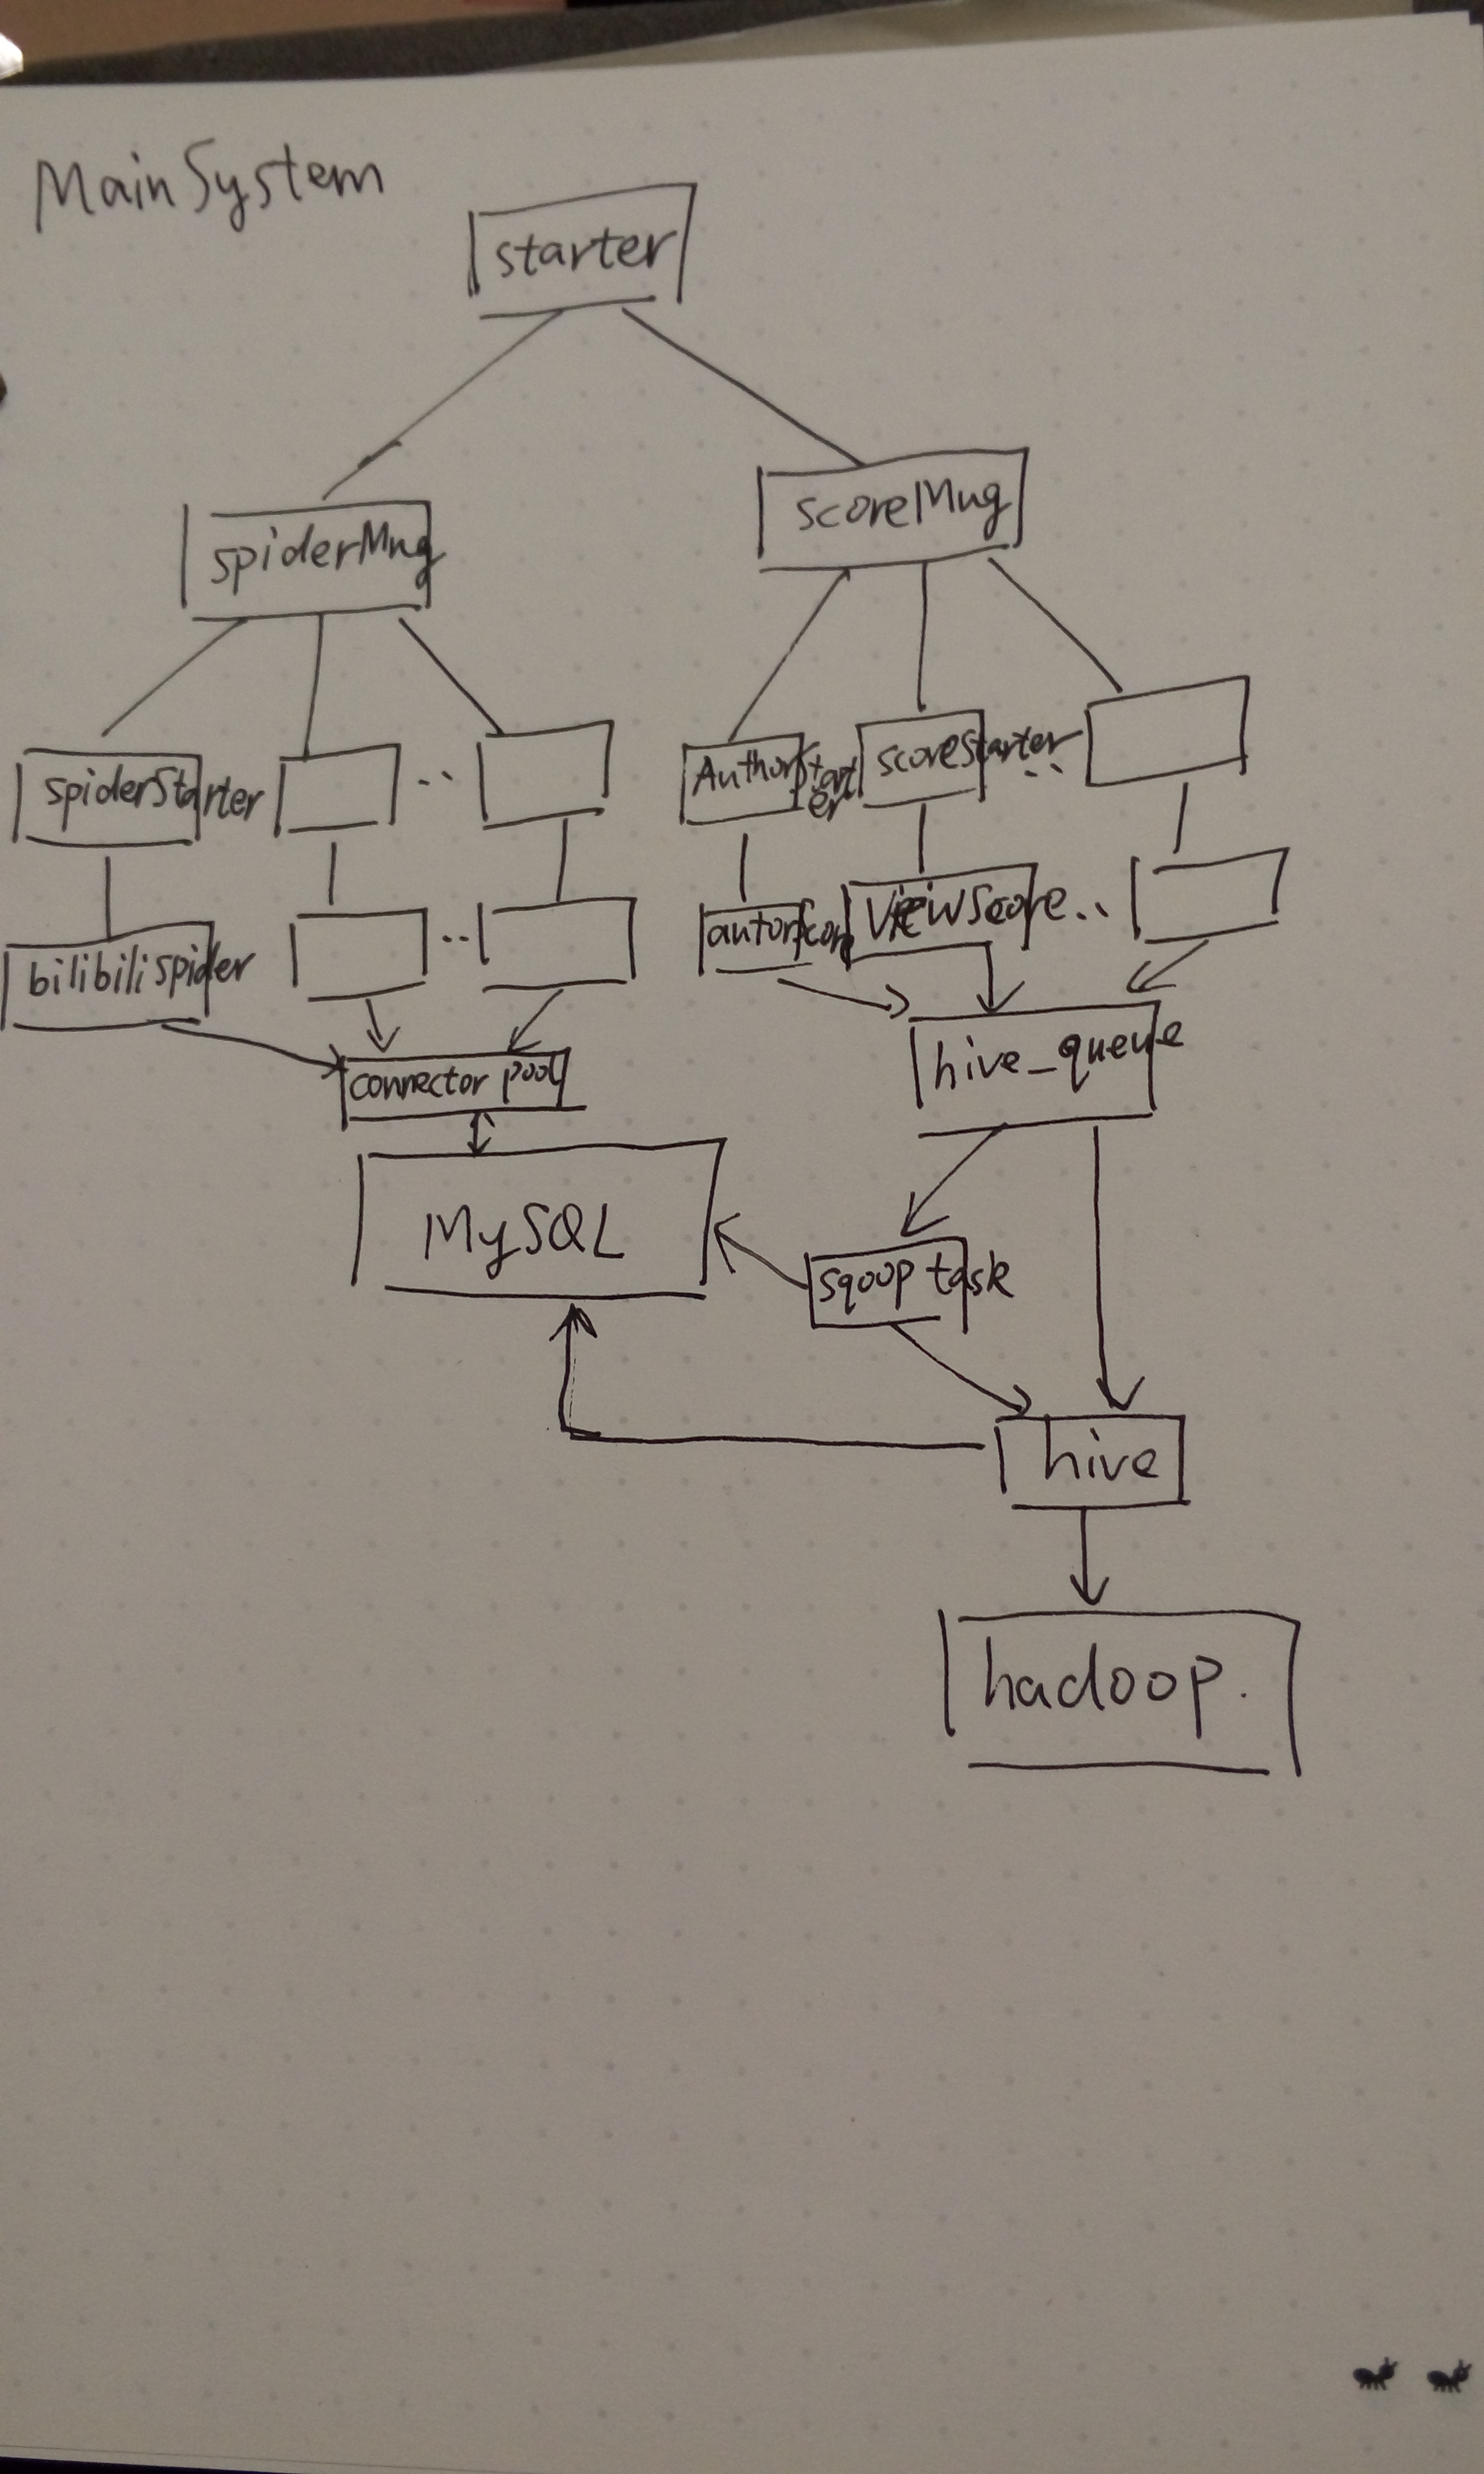 MainSystem
starter
spiderMng
scoreMng
spiderStarter
..
AuthorStart
er
scoreStarter
..
bilibilispider
..
autorScore
ViewScore..
connector pool
hive_queue
MySQL
sqoop task
hive
hadoop.